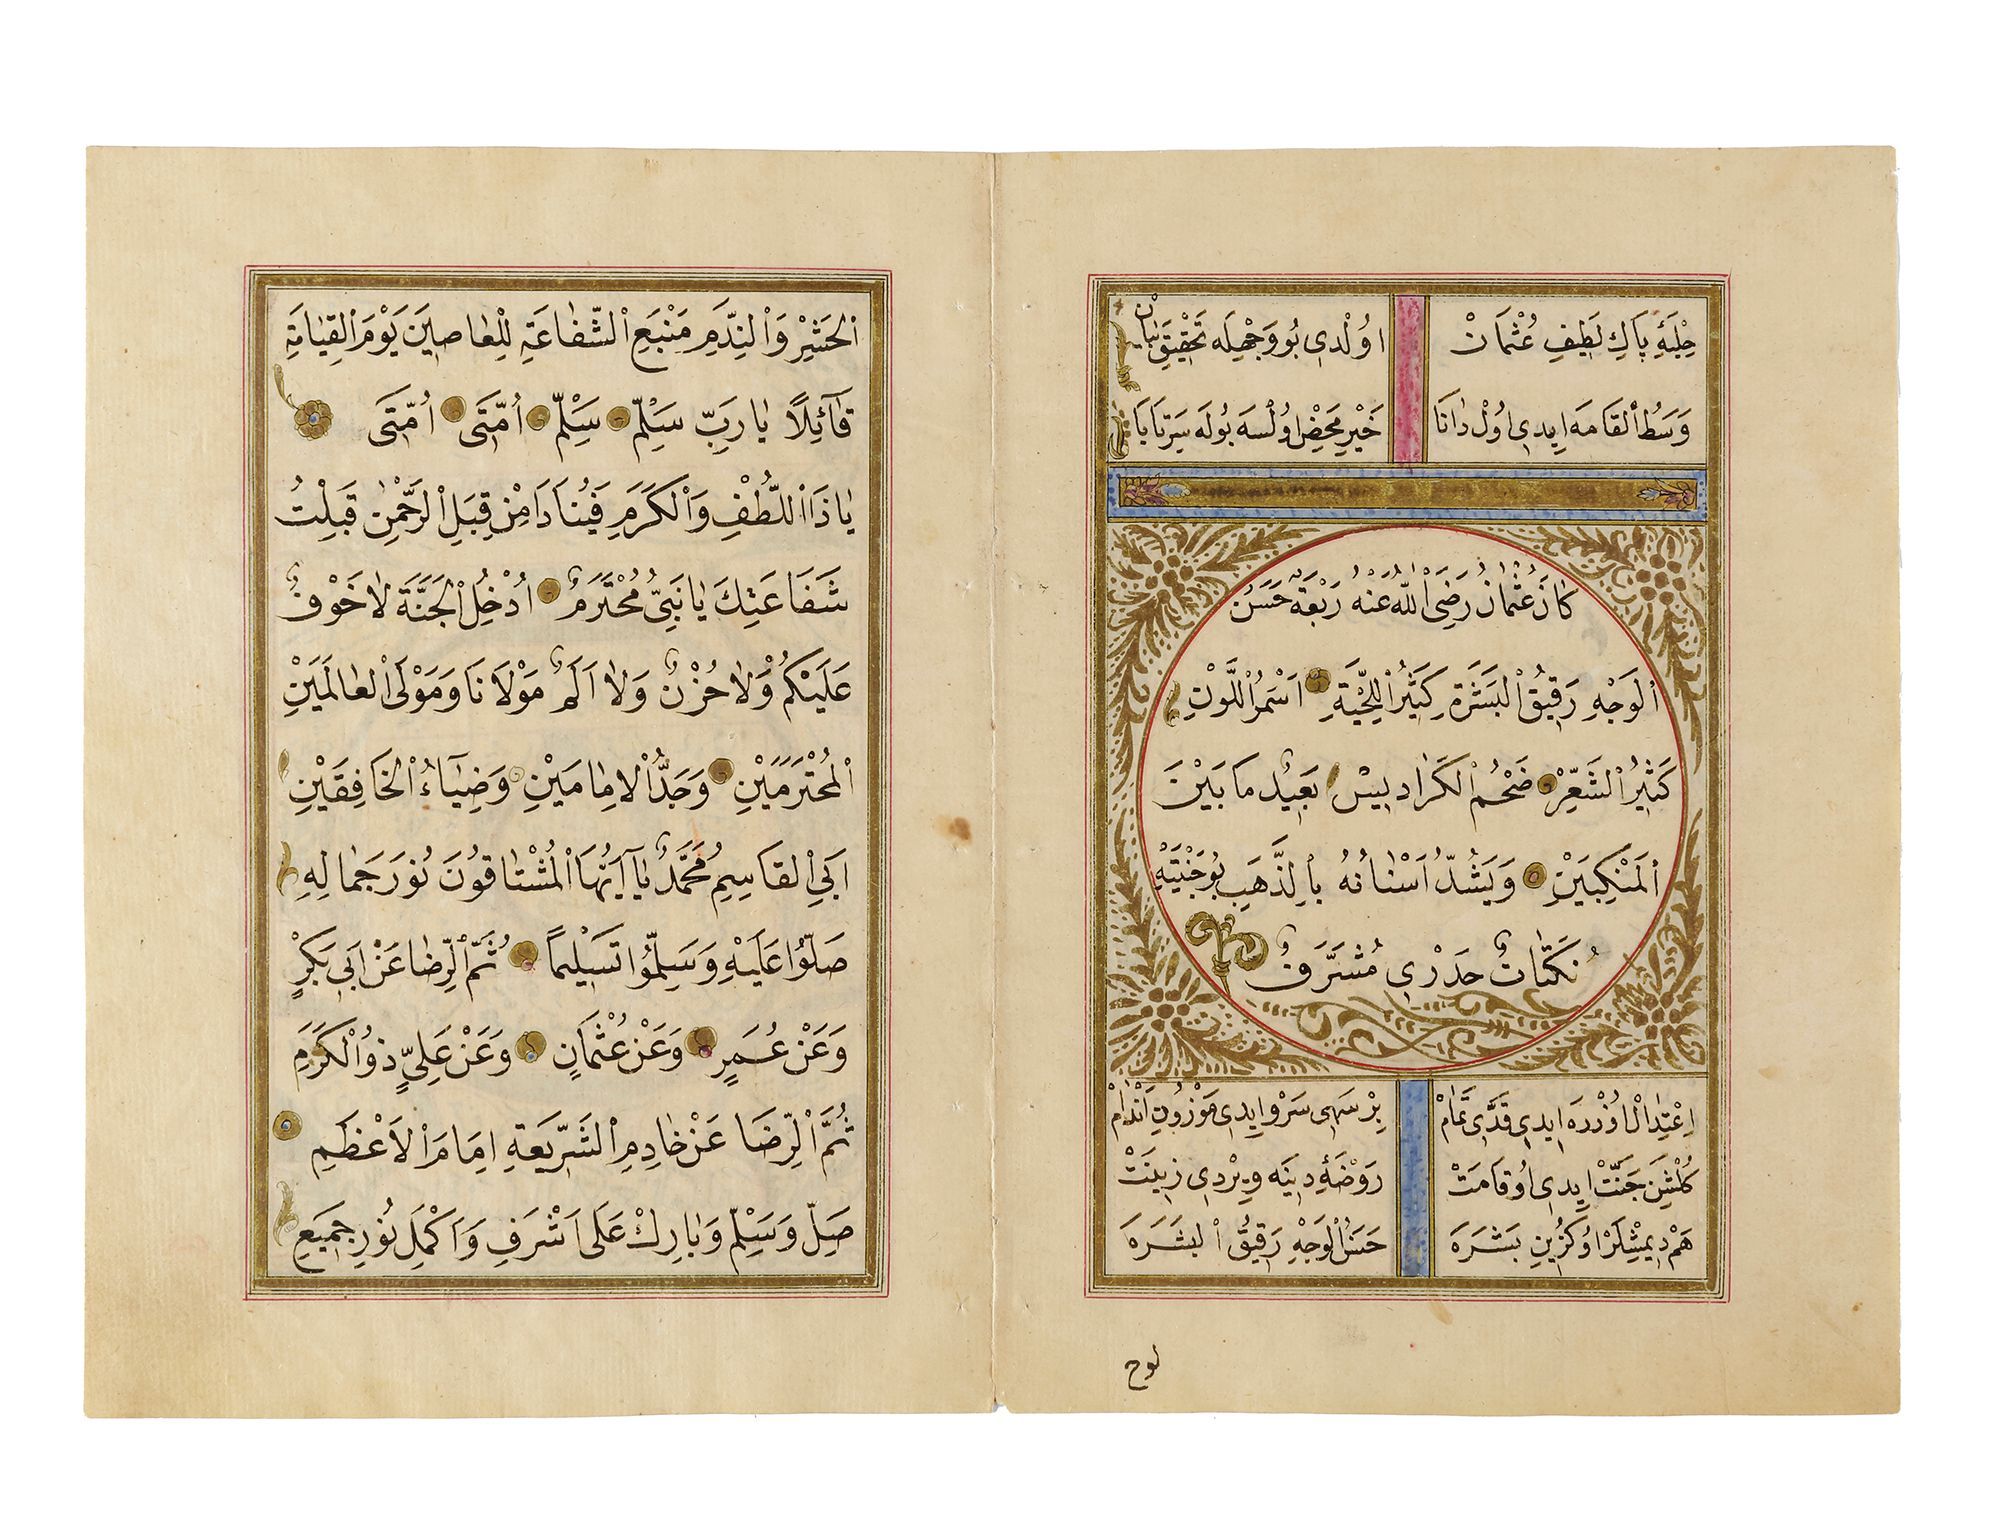 حِلْيَهِٔ پَاكِ لَطِيفِ عُثْمَانْ اوُلْدِى بُو وَجْهِلَه تَحْقِيقِ بَيَانْ
وَسَطُ الْقَامَه اِيدِى اوُلْ دَانَا خَيْرِ مَحْضِ اوُلْسَه بُولَه سَرْتَابَا
كَانَ عُثْمَانُ رَضِىَ اللّٰهُ عَنْهُ رَبْعَةٌ حَسَنُ
الْوَجْهِ رَقِيقُ الْبَشَرَةِ كَثِيرُ اللِّحْيَةِ اَسْمَرُ اللَّوْنِ
كَثِيرُ الشَّعْرِ ضَخْمُ الْكَرَادِيسِ بَعِيدُ مَا بَيْنَ
الْمَنْكِبَيْنِ وَيَشُدُّ اَسْنَانُهُ بِالذَّهَبِ بِوَجْنَتِهِ
نَكَتَاتُ جَدْرِى مُشَرَّفٌ
اِعْتِدَالْ اُوزْرَه اِيدِى قَدِّى تَمَامْ بِرْ سَهِى سَرْو اِيدِى مَوْزُونِ اَنْدَامْ
كُلْشَنِ جَنَّتْ اِيدِى اوُ قَامَتْ رَوْضَهِٔ دِينَه وِيرْدِى زِينَتْ
هَمْ دِيمِشْلَرْ اوُ كُزِينِ بَشَرَه حَسَنُ الْوَجْهِ رَقِيقُ الْبَشَرَه
لوح
الْحَشْرِ وَالنَّدَمِ مَنْبَعِ الشَّفَاعَةِ لِلْعَاصِينَ يَوْمَ الْقِيَامَةِ
قَآئِلاً يَا رَبِّ سَلِّمْ سَلِّمْ اُمَّتَى اُمَّتَى
يَا ذَا اللُّطْفِ وَالْكَرَمِ فَيُنَادَا مِنْ قِبَلِ الرَّحْمٰنِ قَبِلْتُ
شَفَاعَتِكَ يَا نَبِىُّ مُحْتَرَمُ اُدْخُلِ الْجَنَّةَ لَا خَوْفٌ
عَلَيْكُمْ وَلَا حُزْنٌ وَلَا اَلَمٌ مَوْلَانَا وَمَوْلَى الْعَالَمَيْنِ
الْمُحْتَرَمَيْنِ وَجَدُّ الْاِمَامَيْنِ وَضِيَاءُ الْخَافِقَيْنِ
اَبِى الْقَاسِمِ مُحَمَّدٌ يَآ اَيُّهَا الْمُشْتَاقُونَ نُورَ جَمَالِهِ
صَلُّوا عَلَيْهِ وَسَلِّمُوا تَسْلِيمًا ثُمَّ الرِّضَا عَنْ اَبِى بَكْرٍ
وَعَنْ عُمَرٍ وَعَنْ عُثْمَانٍ وَعَنْ عَلِىٍّ ذُو الْكَرَمِ
ثُمَّ الرِّضَا عَنْ خَادِمِ الشَّرِيعَةِ اِمَامَ الْاَعْظَمِ
صَلِّ وَسَلِّمْ وَبَارِكْ عَلَى اَشْرَفِ وَاَكْمَلِ نُورِ جَمِيعِ